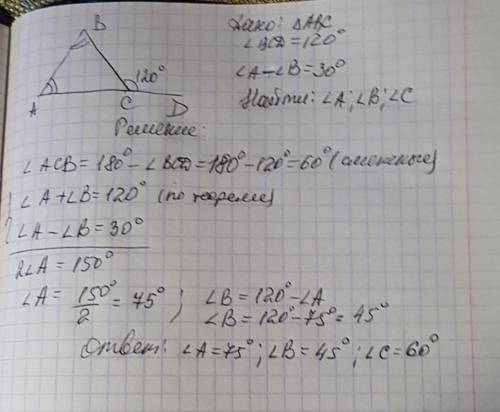 B
Дано: △ABC
∠BCD=120°
∠A-∠B=30°
Найти: ∠A; ∠B; ∠C
120°
A C D
Решение:
∠ACB=180°-∠BCD=180°-120°=60° (смежные)
∠A+∠B=120° (по теореме)
∠A-∠B=30°
2∠A=150°
∠A=150°/2=75°; ∠B=120°-∠A
∠B=120°-75°=45°
Ответ: ∠A=75°; ∠B=45°; ∠C=60°